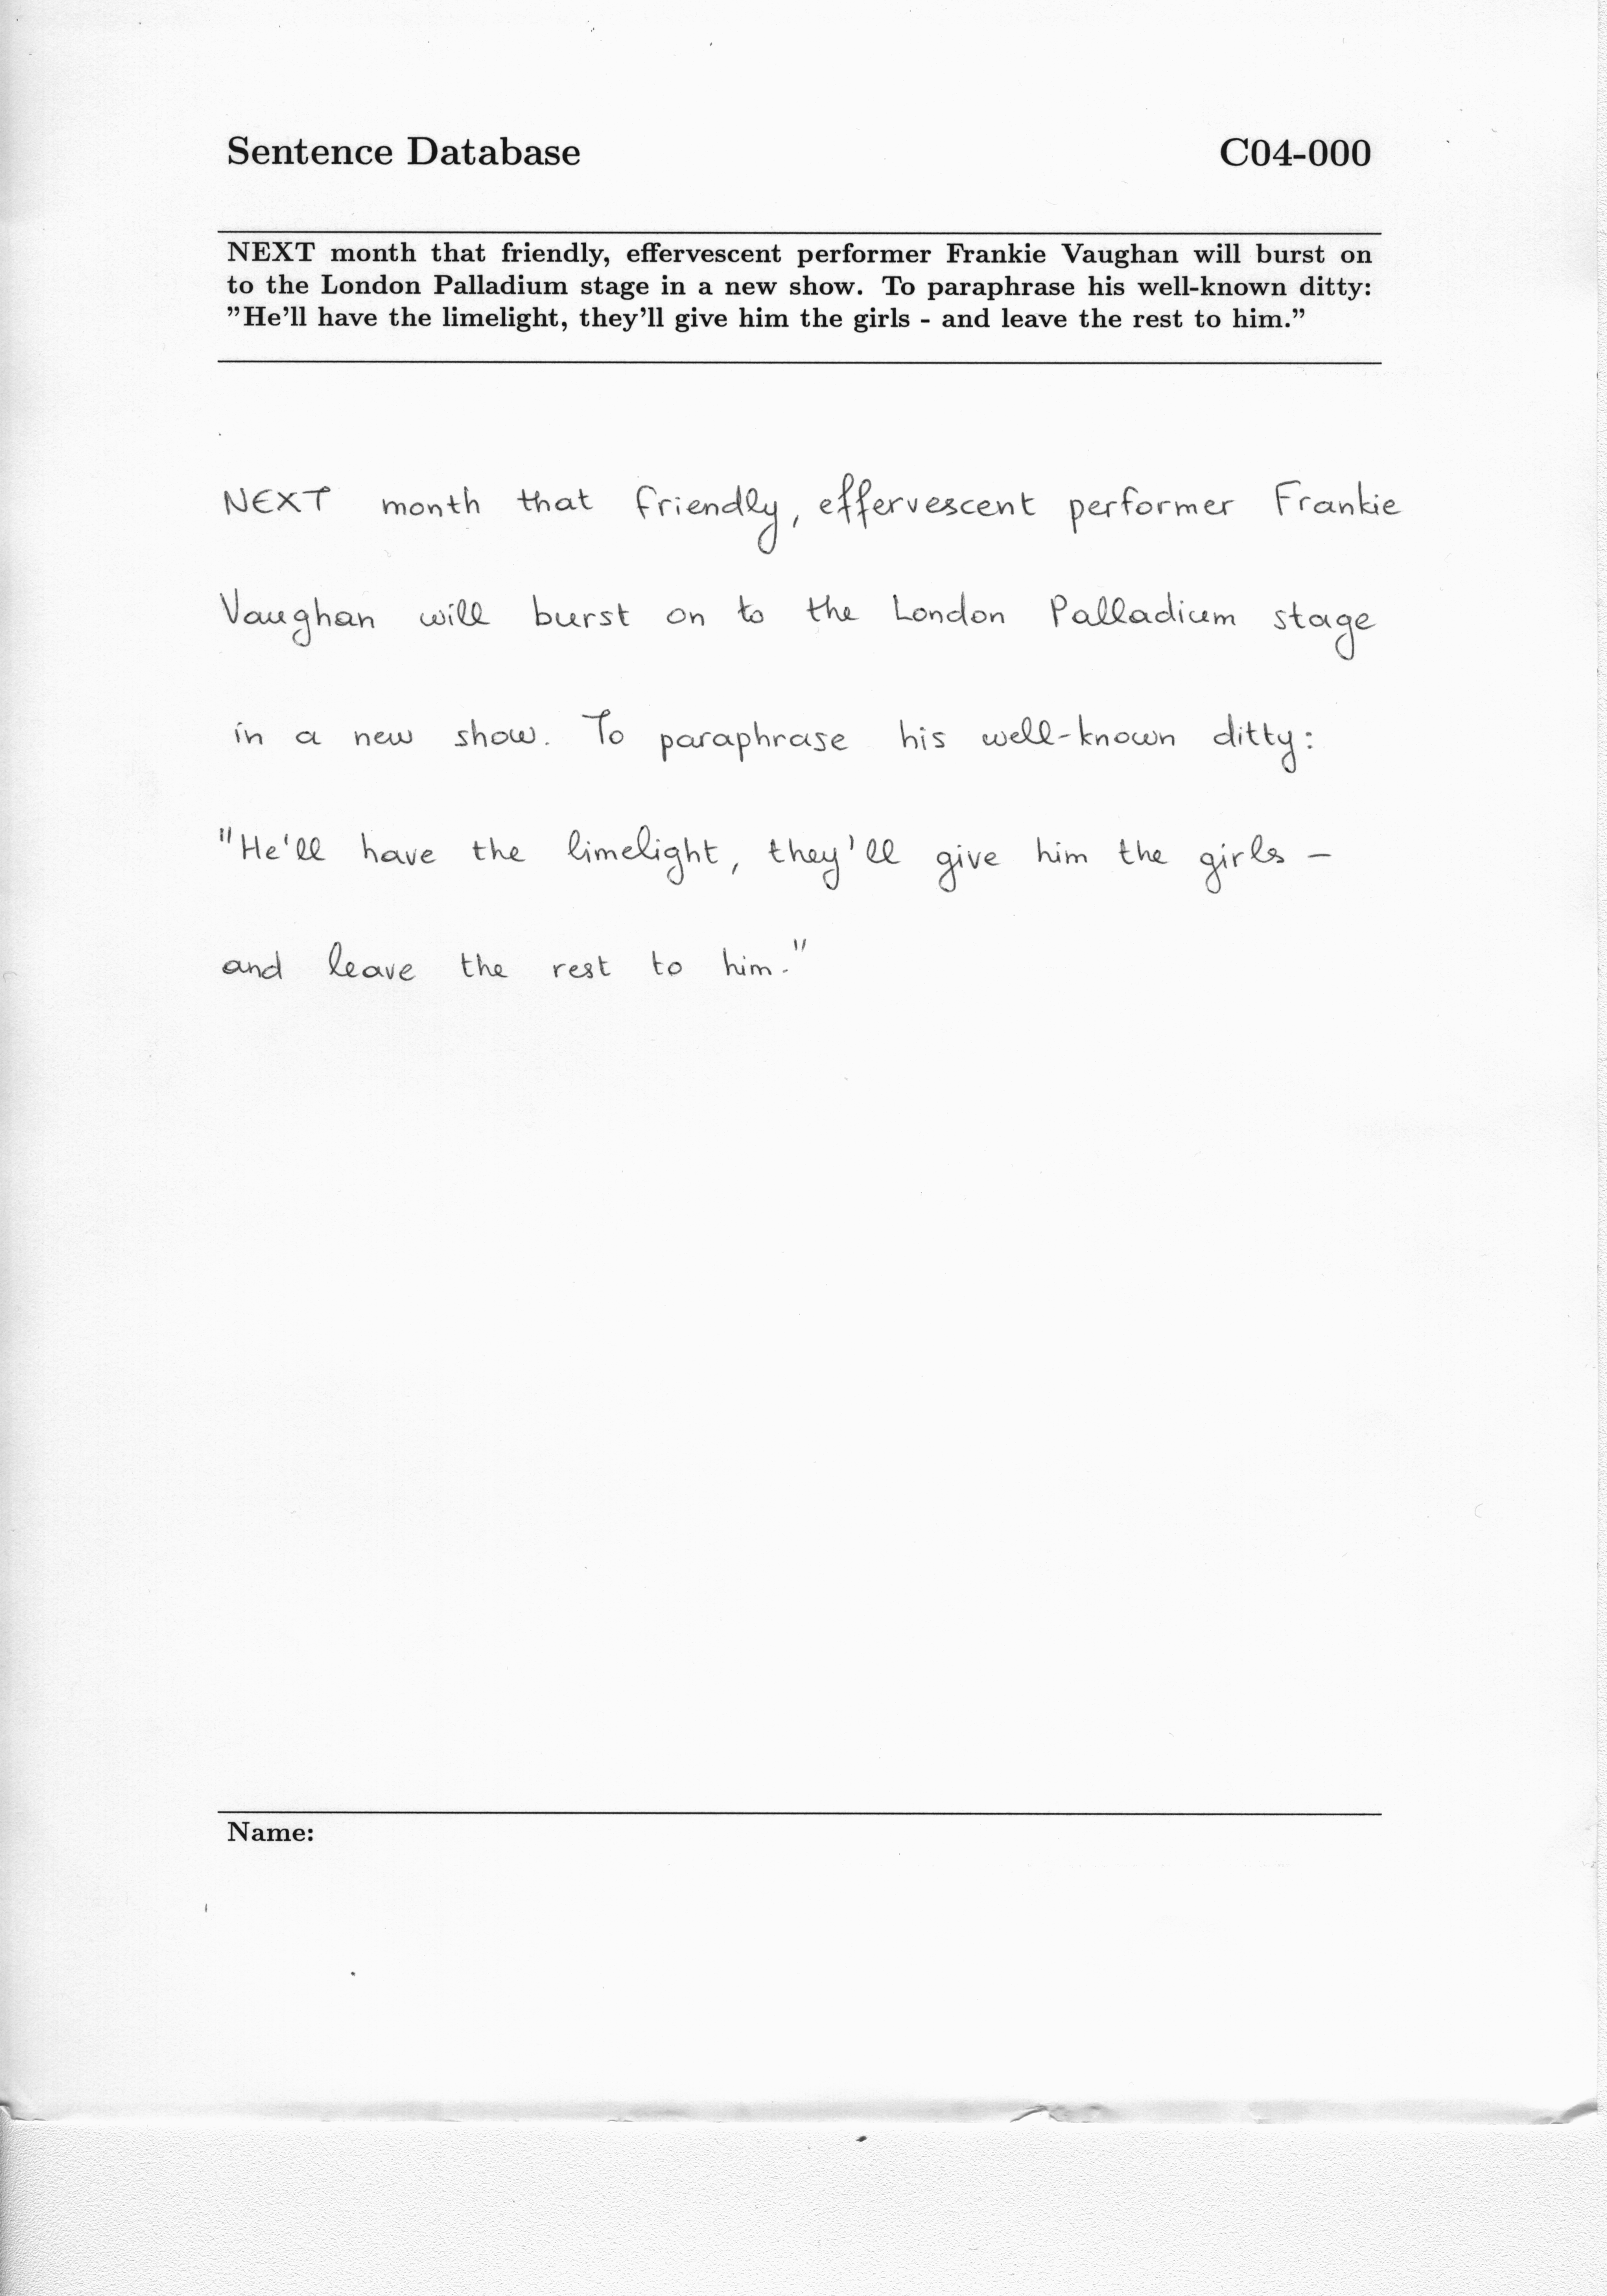 Sentence Database C04-000
NEXT month that friendly, effervescent performer Frankie Vaughan will burst on
to the London Palladium stage in a new show. To paraphrase his well-known ditty:
”He’ll have the limelight, they’ll give him the girls - and leave the rest to him.”
NEXT month that friendly, effervescent performer Frankie
Vaughan will burst on to the London Palladium stage
in a new show. To paraphrase his well-known ditty:
"He'll have the limelight, they'll give him the girls -
and leave the rest to him."
Name: